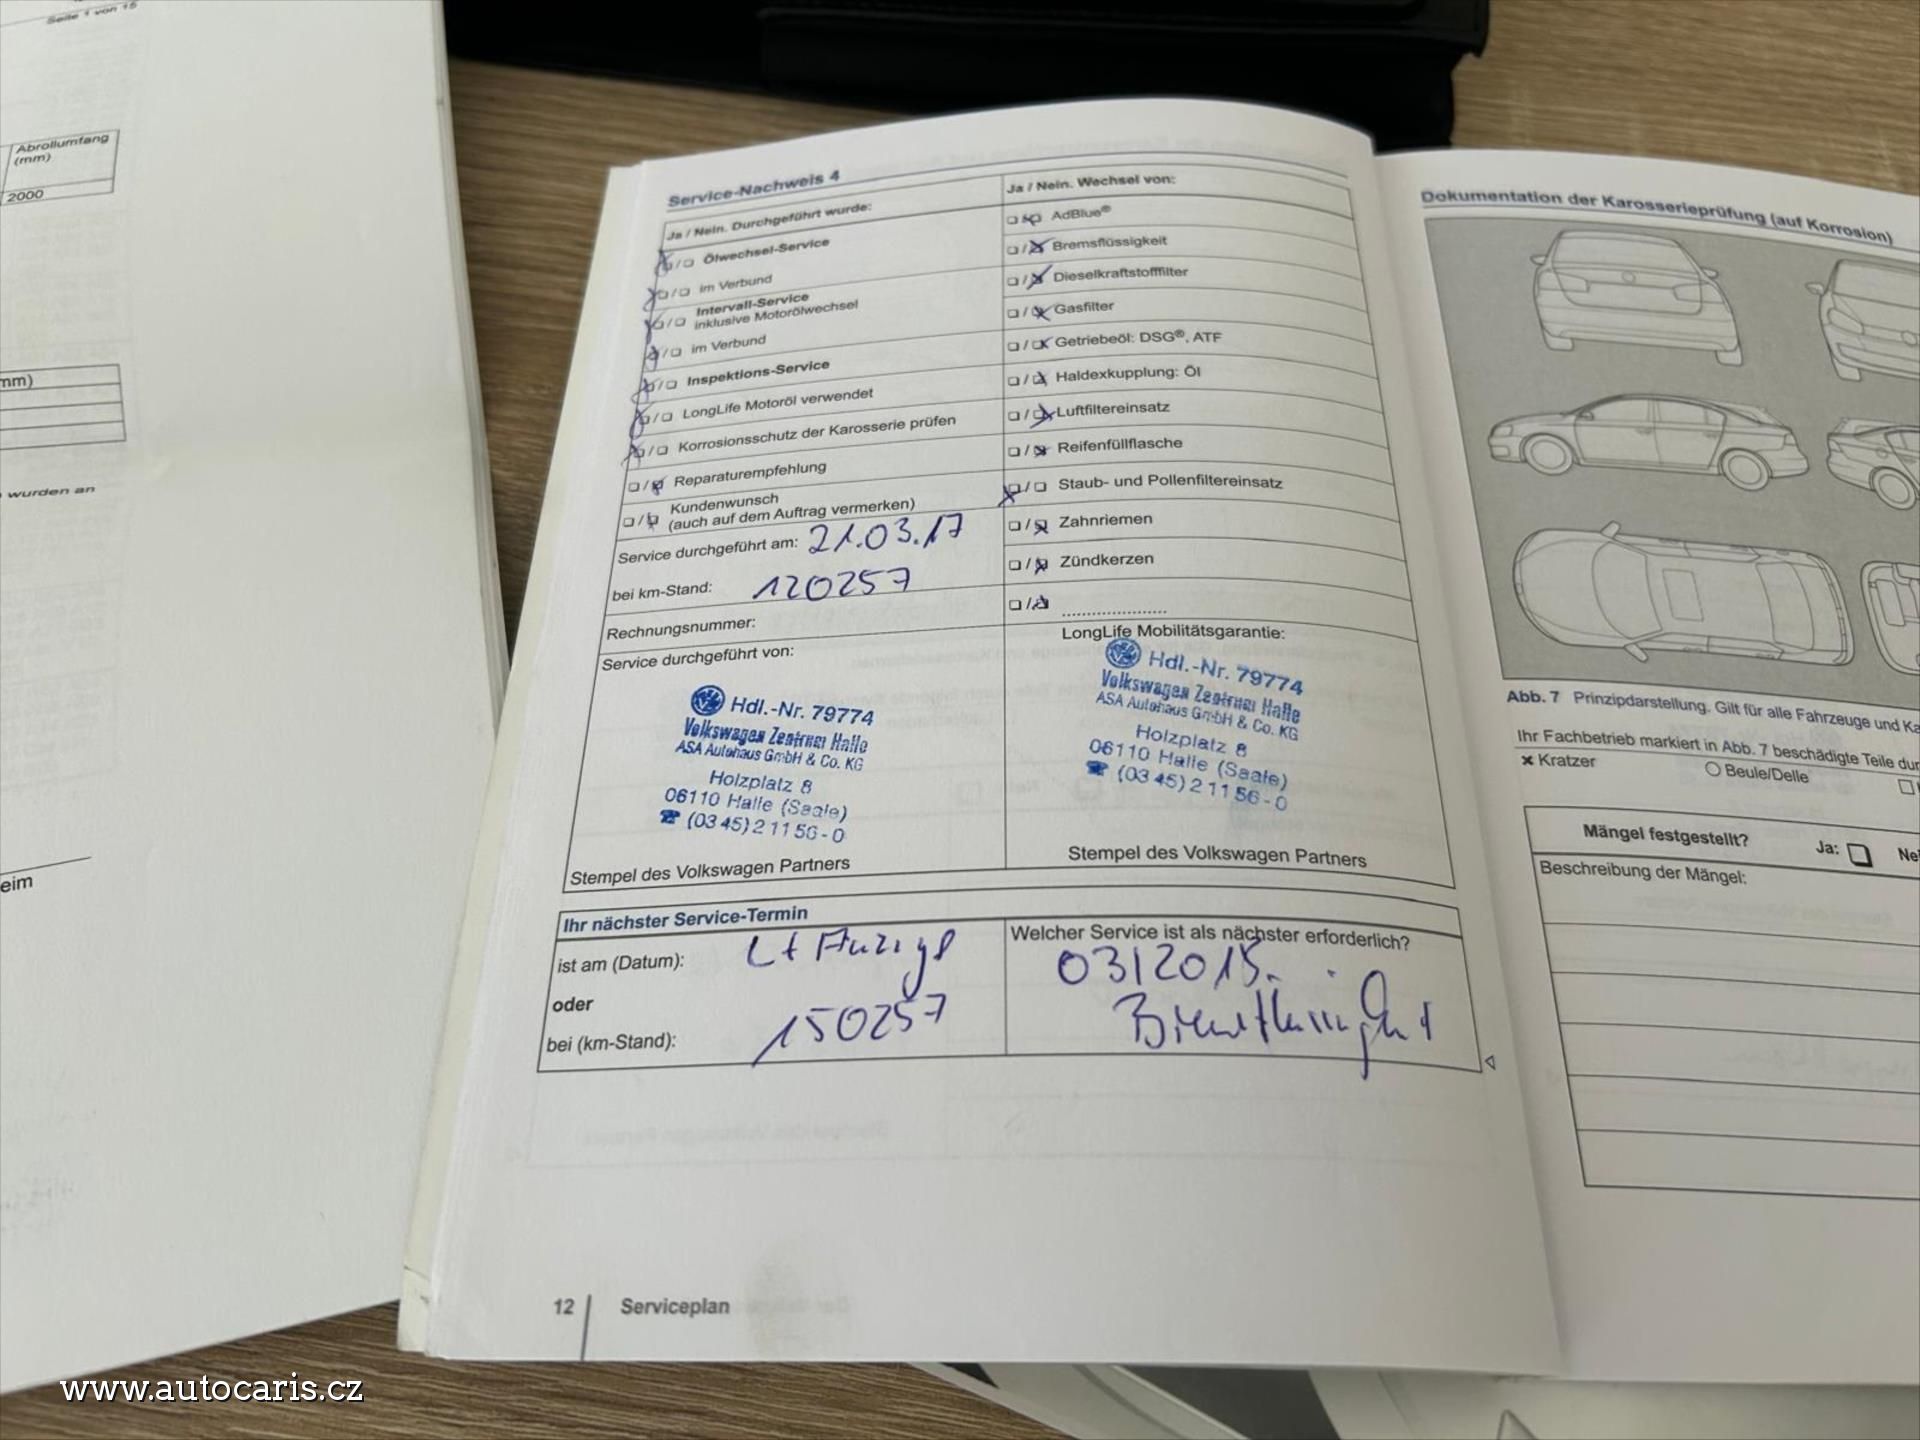 Seite 1 von 15
Abrollumfang
(mm)
2000
mm)
wurden an
eim
Service-Nachweis 4
Ja / Nein. Durchgeführt wurde:
Ölwechsel-Service
im Verbund
Intervall-Service
inklusive Motorölwechsel
im Verbund
Inspektions-Service
LongLife Motoröl verwendet
Korrosionsschutz der Karosserie prüfen
Reparaturempfehlung
Kundenwunsch
(auch auf dem Auftrag vermerken)
Service durchgeführt am: 21.03.17
bei km-Stand: 120257
Rechnungsnummer:
Service durchgeführt von:
Hdl.-Nr. 79774
Volkswagen Zentrum Halle
ASA Autohaus GmbH & Co. KG
Holzplatz 8
06110 Halle (Saale)
☎ (03 45) 2 11 56 - 0
Stempel des Volkswagen Partners
Ja / Nein. Wechsel von:
AdBlue®
Bremsflüssigkeit
Dieselkraftstofffilter
Gasfilter
Getriebeöl: DSG®, ATF
Haldexkupplung: Öl
Luftfiltereinsatz
Reifenfüllflasche
Staub- und Pollenfiltereinsatz
Zahnriemen
Zündkerzen
LongLife Mobilitätsgarantie:
Hdl.-Nr. 79774
Volkswagen Zentrum Halle
ASA Autohaus GmbH & Co. KG
Holzplatz 8
06110 Halle (Saale)
☎ (03 45) 2 11 56 - 0
Stempel des Volkswagen Partners
Ihr nächster Service-Termin
ist am (Datum): Lt Anzeige
oder
bei (km-Stand): 150257
Welcher Service ist als nächster erforderlich?
12 Serviceplan
Dokumentation der Karosserieprüfung (auf Korrosion)
Abb. 7 Prinzipdarstellung. Gilt für alle Fahrzeuge und Ka
Ihr Fachbetrieb markiert in Abb. 7 beschädigte Teile dur
× Kratzer
Beule/Delle
Mängel festgestellt? Ja: Ne
Beschreibung der Mängel:
www.autocaris.cz